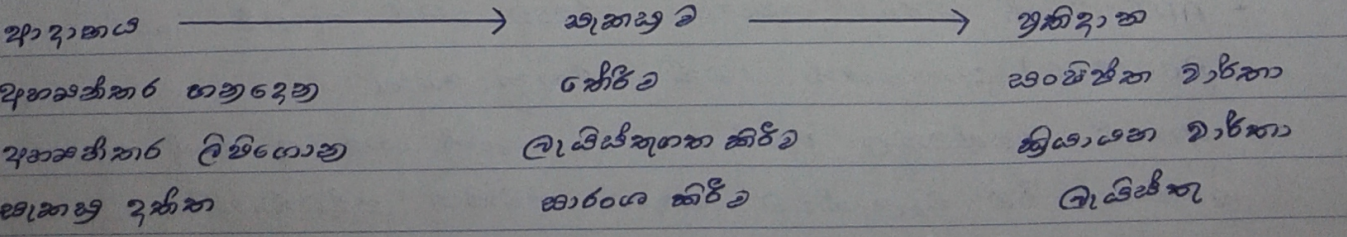 ආදානය → සැකසුම → ප්‍රතිදාන
අභ්‍යන්තර ගනුදෙනු තේරීම සංෂිප්ත වාර්තා
අභ්‍යන්තර ලිපිගොනු ලැයිස්තුගත කිරීම ක්‍රියායන වාර්තා
සැකසූ දත්ත සාරංශ කිරීම ලැයිස්තු